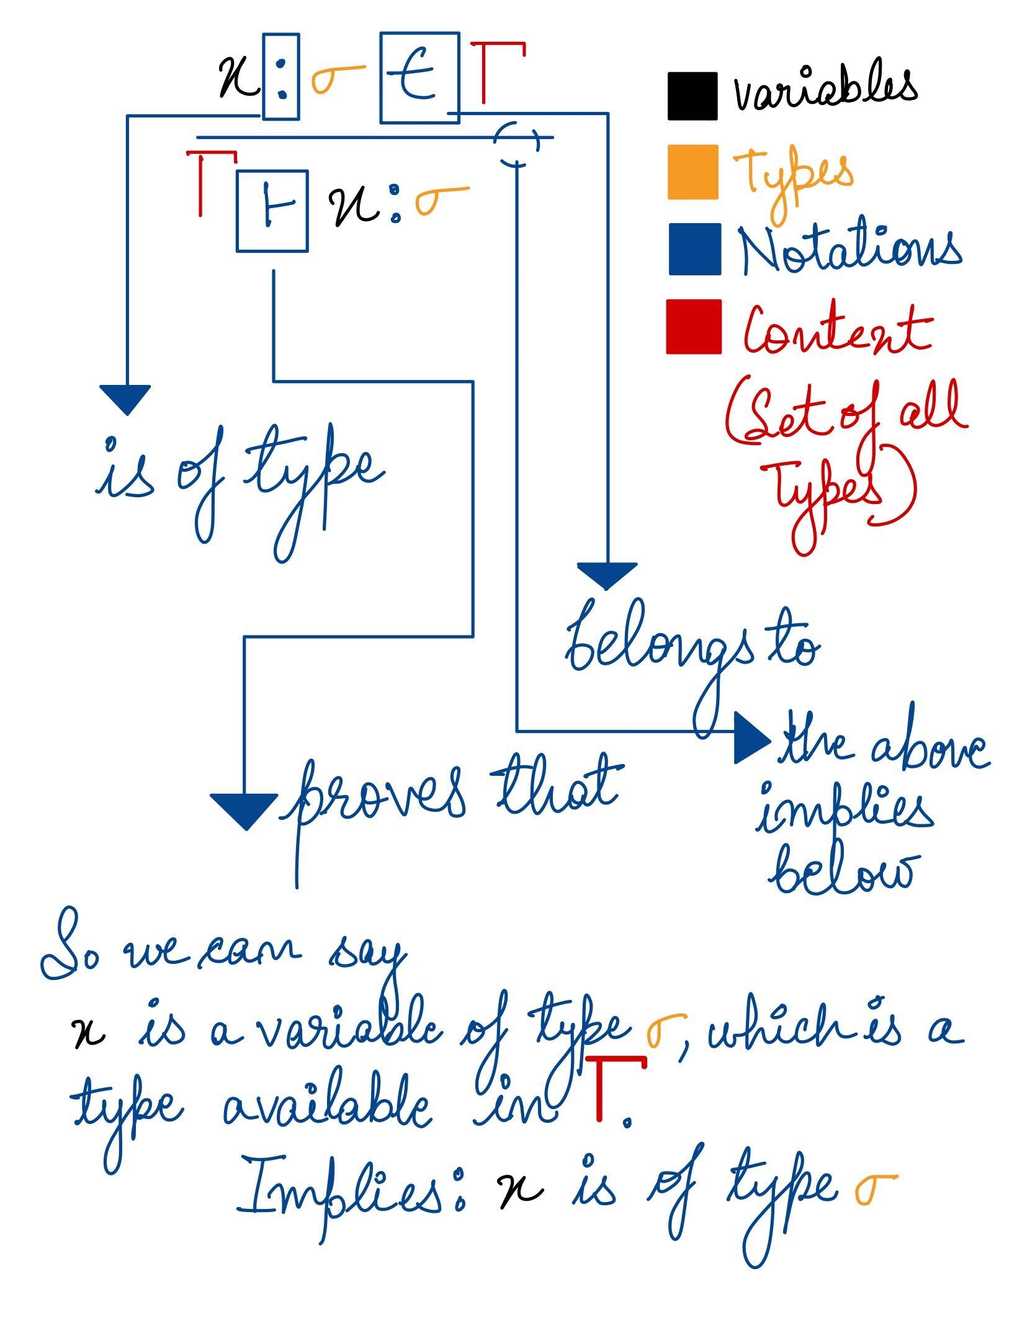 x : σ ∈ Γ
Γ ⊢ x : σ
variables
Types
Notations
Context
(Set of all
Types)
is of type
belongs to
proves that
the above
implies
below
So we can say
x is a variable of type σ, which is a
type available in Γ.
Implies: x is of type σ